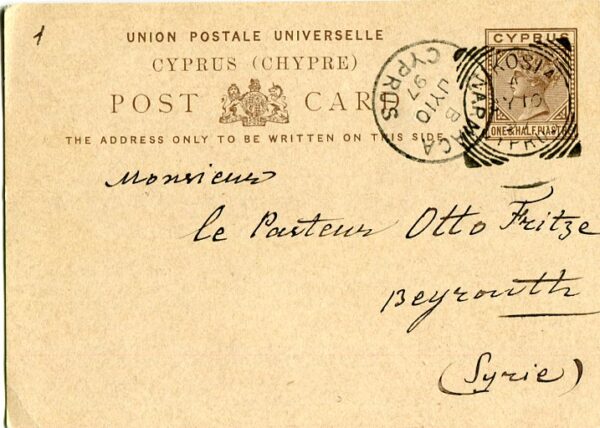 1
UNION POSTALE UNIVERSELLE
CYPRUS (CHYPRE)
POST CARD
THE ADDRESS ONLY TO BE WRITTEN ON THIS SIDE
CYPRUS
ONE & HALF PIASTRE
CYPRUS
B
JY 10
97
LARNACA
JY 10
CYPRUS
Monsieur
le Pasteur Otto Fritze
Beyrouth
(Syrie)